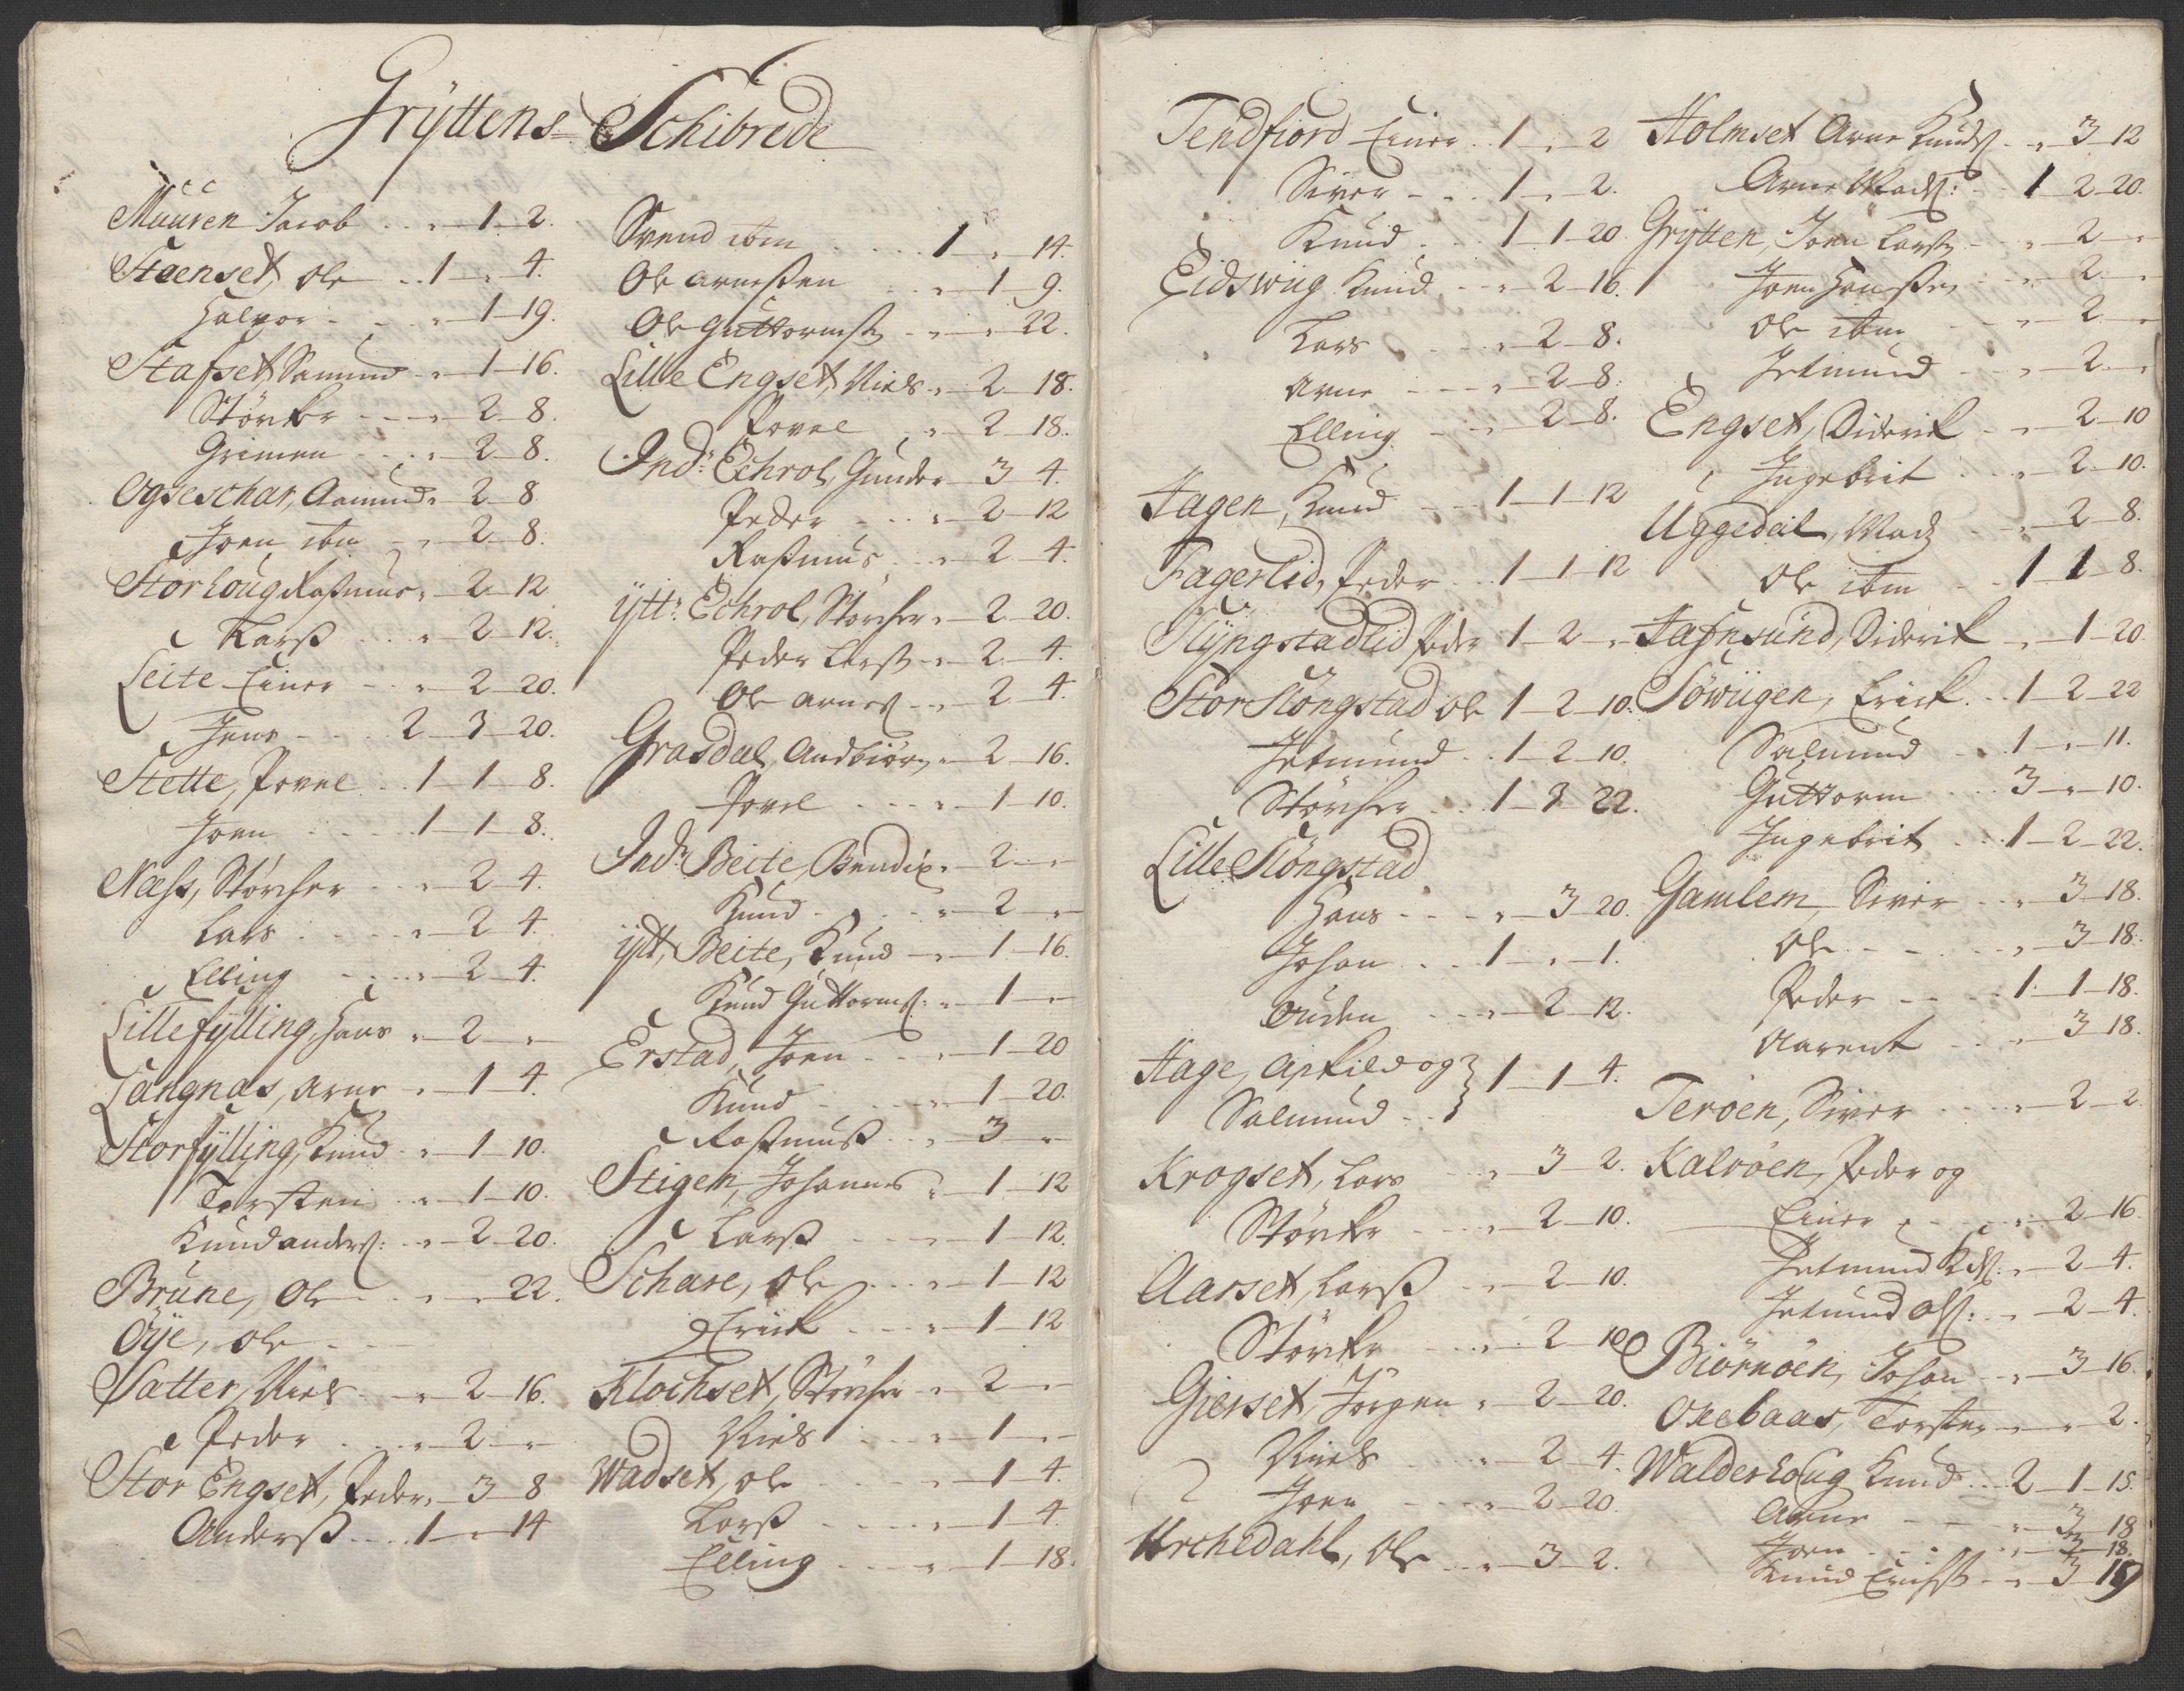 Gryttens Schibrede
Muuren Jacob . . „ 1 2.
Steenset, Ole . . 1 „ 4.
Halvor . . „ 1 19.
Stafset, Samund „ 1 16.
Størker . . „ 2 8.
Grimen . . „ 2 8.
Ogseschar, Aamund „ 2 8
Joen ibm „ 2 8.
Storhoug Rasmus „ 2 12
Larß . . „ 2 12.
Leite Einer „ 2 20.
Jens . . 2 3 20.
Stette, Povel . . 1 1 8.
Joen . . 1 1 8.
Næss, Størcher . . „ 2 4.
Lars . . „ 2 4.
Elling . . „ 2 4.
Lillefylling, Hans „ 2 „
Langnas, Arne „ 1 4.
Storfylling, Knud „ 1 10.
Torsten „ 1 10.
Knud anders: „ 2 20.
Brune, Ole . . „ „ 22.
Öye, Ole
Satter, Niels „ 2 16.
Peder . . „ 2 „
Stor Engset, Peder „ 3 8
Anderß . . 1 „ 14
Svend ibm . . 1 „ 14.
Ole arneßen . . „ 1 9.
Ole Guttormß „ „ 22.
Lille Engset, Niels „ 2 18.
Povel „ 2 18.
Ind: Echrol, Gunder 3 4.
Peder . . „ 2 12
Raßmus . . „ 2 4.
ytt: Echrol, Størcher „ 2 20.
Peder Larß „ 2 4.
Ole arnes „ 2 4.
Grasdal, Andbiørn „ 2 16.
Povel . . „ 1 10.
Ind: Beite, Bendix „ 2 „
Knud . . „ 2 „
ytt, Beite, Knud „ 1 16.
Knud Guttorms: „ 1 „
Erstad, Joen . . „ 1 20
Knud . . „ 1 20.
Raßmuß . . „ 3 „
Stigen, Johannes „ 1 12
Larß . . „ 1 12.
Schare, Ole . . „ 1 12
Erick . . „ 1 12
Klochset, Størcher „ 2 „
Niels . . „ 1 „
Wadset, Ole . . „ 1 4.
Larß . . „ 1 4.
Elling . . „ 1 18.
Tendfiord Einer . . 1 „ 2
Siver . . 1 „ 2.
Knud . . 1 1 20.
Eidswiig Knud . . „ 2 16.
Lars . . „ 2 8.
Arne . . „ 2 8.
Elling . . „ 2 8.
Hagen, Knud . . 1 1 12
Fagerlid, Peder . . 1 1 12
Slyngstadlid Peder 1 2 „
Stor Slöngstad Ole 1 2 10.
Jetmund . . 1 2 10.
Størcher . . 1 3 22.
Lille Slöngstad
Hans . . „ 3 20.
Johan . . 1 „ 1.
Auden . . „ 2 12.
Hage, Askild og }
Salmund . . } 1 1 4.
Krogset, Lars . . „ 3 2.
Størker . . „ 2 10.
Aarset, Larß „ 2 10.
Størker . . „ 2 10
Gierset, Jørgen „ 2 20.
Niels . . „ 2 4.
Joen . . „ 2 20.
Urchedahl, Ole . . „ 3 2.
Holmset Arne Knuds . . „ 3 12
Arne Mads: . . 1 2 20.
Grytten, Joen Larß . . „ 2 „
Joen Hanßen . . „ 2 „
Ole ibm . . „ 2 „
Jetmund . . „ 2 „
Engset, Diderik . . „ 2 10
Ingebrit . . „ 2 10.
Uggedal, Mads . . „ 2 8.
Ole ibm . . 1 1 8.
Hafnsund, Diderik „ 1 20.
Söwiigen, Erick . . 1 2 22
Salmund . . 1 „ 11.
Guttorm . . 3 „ 10.
Ingebrit . . 1 2 22.
Gamlem, Siver . . „ 3 18.
Ole . . „ 3 18.
Peder . . 1 1 18.
Aarent . . „ 3 18.
Teröen, Siver . . „ 2 2
Kalvöen, Peder og
Einer . . „ 2 16.
Jetmund „ 2 4.
Jetmund Ols: „ 2 4.
Biörnöen, Johan . . „ 3 16.
Oxebaas, Torsten „ „ 2.
Walderhoug Knud . . 2 1 15.
Arne . . „ 3 18
Joen . . „ 3 18.
Knud Erichß „ 3 19